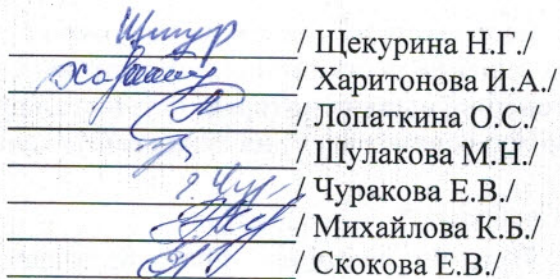 / Щекурина Н.Г./
/ Харитонова И.А./
/ Лопаткина О.С./
/ Шулакова М.Н./
/ Чуракова Е.В./
/ Михайлова К.Б./
/ Скокова Е.В./